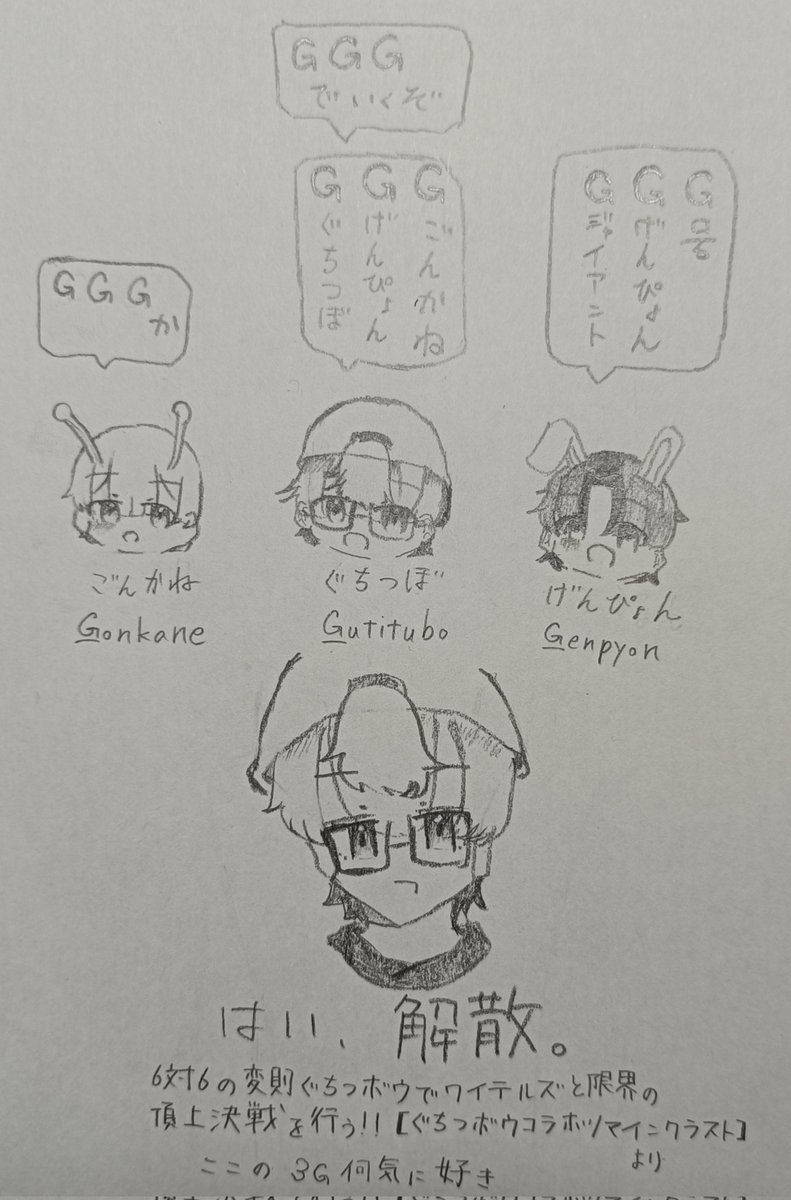 GGG
でいくぞ
G ごんかね
G げんぴょん
G ぐちつぼ
G
G げんぴょん
G ジャイアント
GGG
か
ごんかね
Gonkane
ぐちつぼ
Gutitubo
げんぴょん
Genpyon
はい、解散。
6対6の変則ぐちつボウでワイテルズと限界の
頂上決戦を行う!!【ぐちつボウコラボ/マインクラスト】
より
ここの3G何気に好き